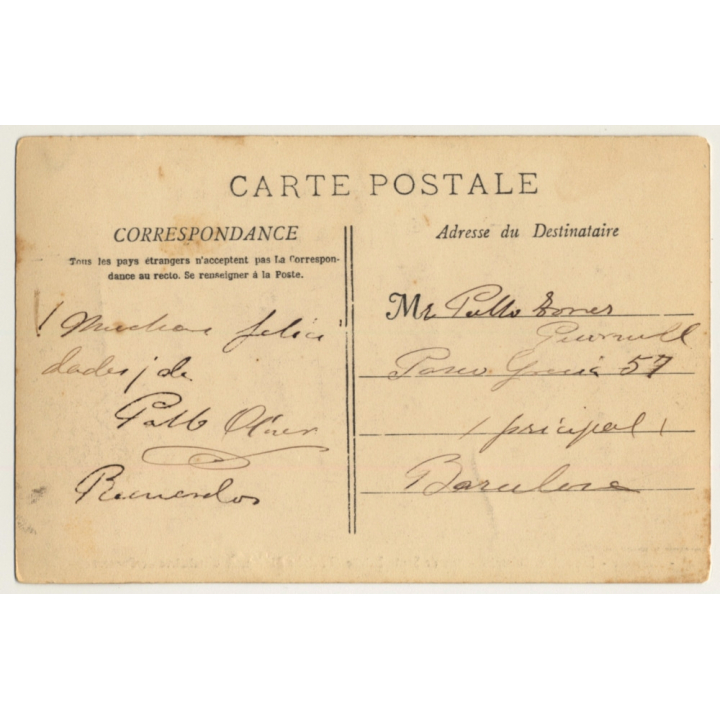 CARTE POSTALE
CORRESPONDANCE
Tous les pays étrangers n'acceptent pas La Correspon-
dance au recto. Se renseigner à la Poste.
¡Muchas felici
dades! de
Pablo Oliver
Recuerdos
Adresse du Destinataire
Mr. Pablo Torres
Paseo Gracia 57
(principal)
Barcelona